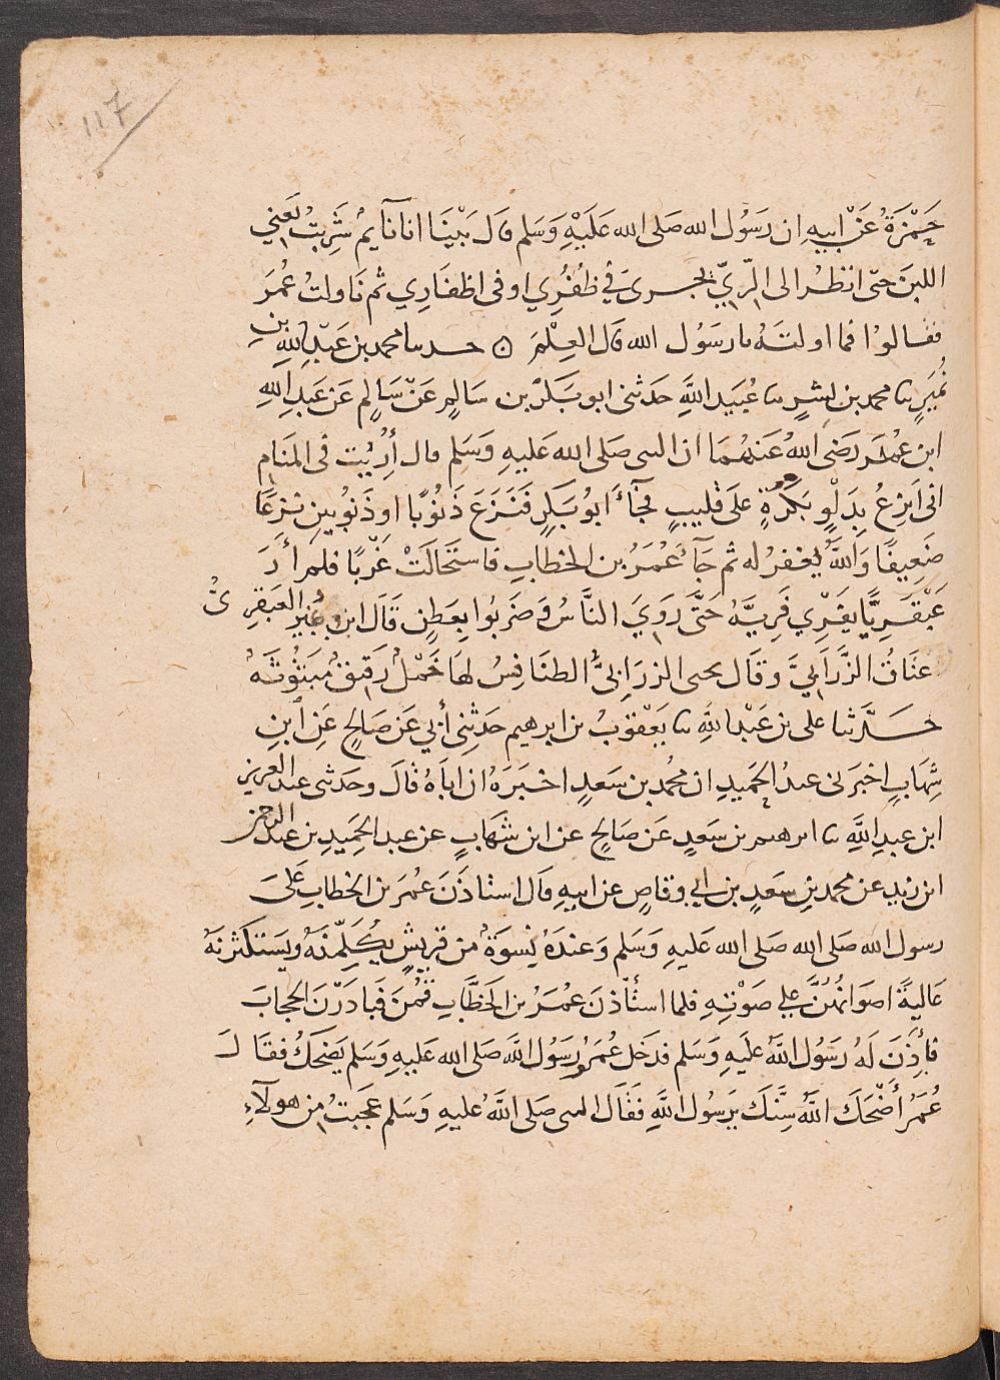 117
حَمْزَةُ عَنْ ابيهِ ان رَسُول الله صَلى الله عَلَيْهِ وَسَلم قال بَيْنَا انا نآيمٌ شَرِبتُ يَعني
اللبنَ حتى انظُرُ الى الرِّيِّ يجرى في ظُفُرِي او فى اظفَارِي ثم نَاولتُ عُمَرَ
فقالوُا فما اولتَهُ يا رسَوُل الله قال العِلْمَ ۞ حدثنا محمد بن عَبْدِ اللهِ بنِ
نُمَيَرٍ نا محمد بن بشرٍ نا عُبَيد اللهِ حَدثنى ابو بَكر بن سَالمٍ عَنْ سَالمٍ عَن عَبدِ اللهِ
ابن عُمَر رَضى اللهُ عَنهُمَا ان النبى صَلى الله عَليهِ وَسَلم قال أُرِيْت فى المنَامِ
انى اَنزِعُ بِدَلْوٍ بَكْرَةٍ عَلَى قليبٍ فجَآءَ ابوُ بَكرٍ فنَزَعَ ذَنوُبًا او ذَنوُبينِ نزعًا
ضَعِيفًا وَاللهُ يَغفرُ له ثم جَآءَ عُمَرُ بن الخطابِ فاستَحَالَتْ غَرْبًا فلم أرَ
عَبْقَرِيًّا يَفْرِي فَرِيَّهُ حَتَّى رَوِيَ النَّاسُ وَضَرَبوُا بِعَطنٍ قَالَ ابن نُمَير العَبقرِىُّ
عتَاقُ الزَّرَابِيَّ وقَال يحيى الزرَابىُّ الطنَافِسُ لهَا خَمْلٌ رَقيقٌ مَبثُوثَةٌ
حَدَّثنا على بن عَبْد اللهِ نا يَعْقوبُ بن ابرهيم حَدثنِى أبي عَن صَالحٍ عَنِ ابنِ
شِهَابٍ اخبرَنى عبدُ الحَميدِ ان محُمد بن سَعدٍ اخبَرَهُ ان اباهُ قالَ وحَدثنى عبد العزيز
ابن عبدِ اللهِ نا ابرهيم بن سَعدٍ عَن صَالحٍ عن ابن شهَابٍ عن عبد الحَمِيدِ بن عبد الرحمن
ابن زيد عن محمد بنِ سعَدٍ بن ابي وقاصٍ عن ابيهِ قال استاذَنَ عُمَرَ بن الخطابِ عَلَى
رسول الله صَلى الله صَلى الله عَليهِ وَسَلم وَعندَهُ نِسوَةٌ من قريشٍ يُكَلِّمْنَهُ ويَستَكثرنَهُ
عَاليَةً اصوَاتُهُنَّ على صَوْتهِ فلما استَأذنَ عُمَرُ بن الخَطَّابِ قُمْنَ فبَادَرْنَ الحِجابَ
فأَذِنَ لَهُ رسَوُل اللهُ عَليَهِ وَسَلم فدخَل عُمَرُ ورَسوُل اللهِ صَلى الله عَليهِ وَسَلم يَضحَكُ فقَالَ
عُمَرُ أَضْحَكَ اللهُ سِنَّكَ يَرسوُل اللهِ فقَالَ النبى صَلى اللهُ عَليهِ وَسَلم عَجبتُ من هولآءِ